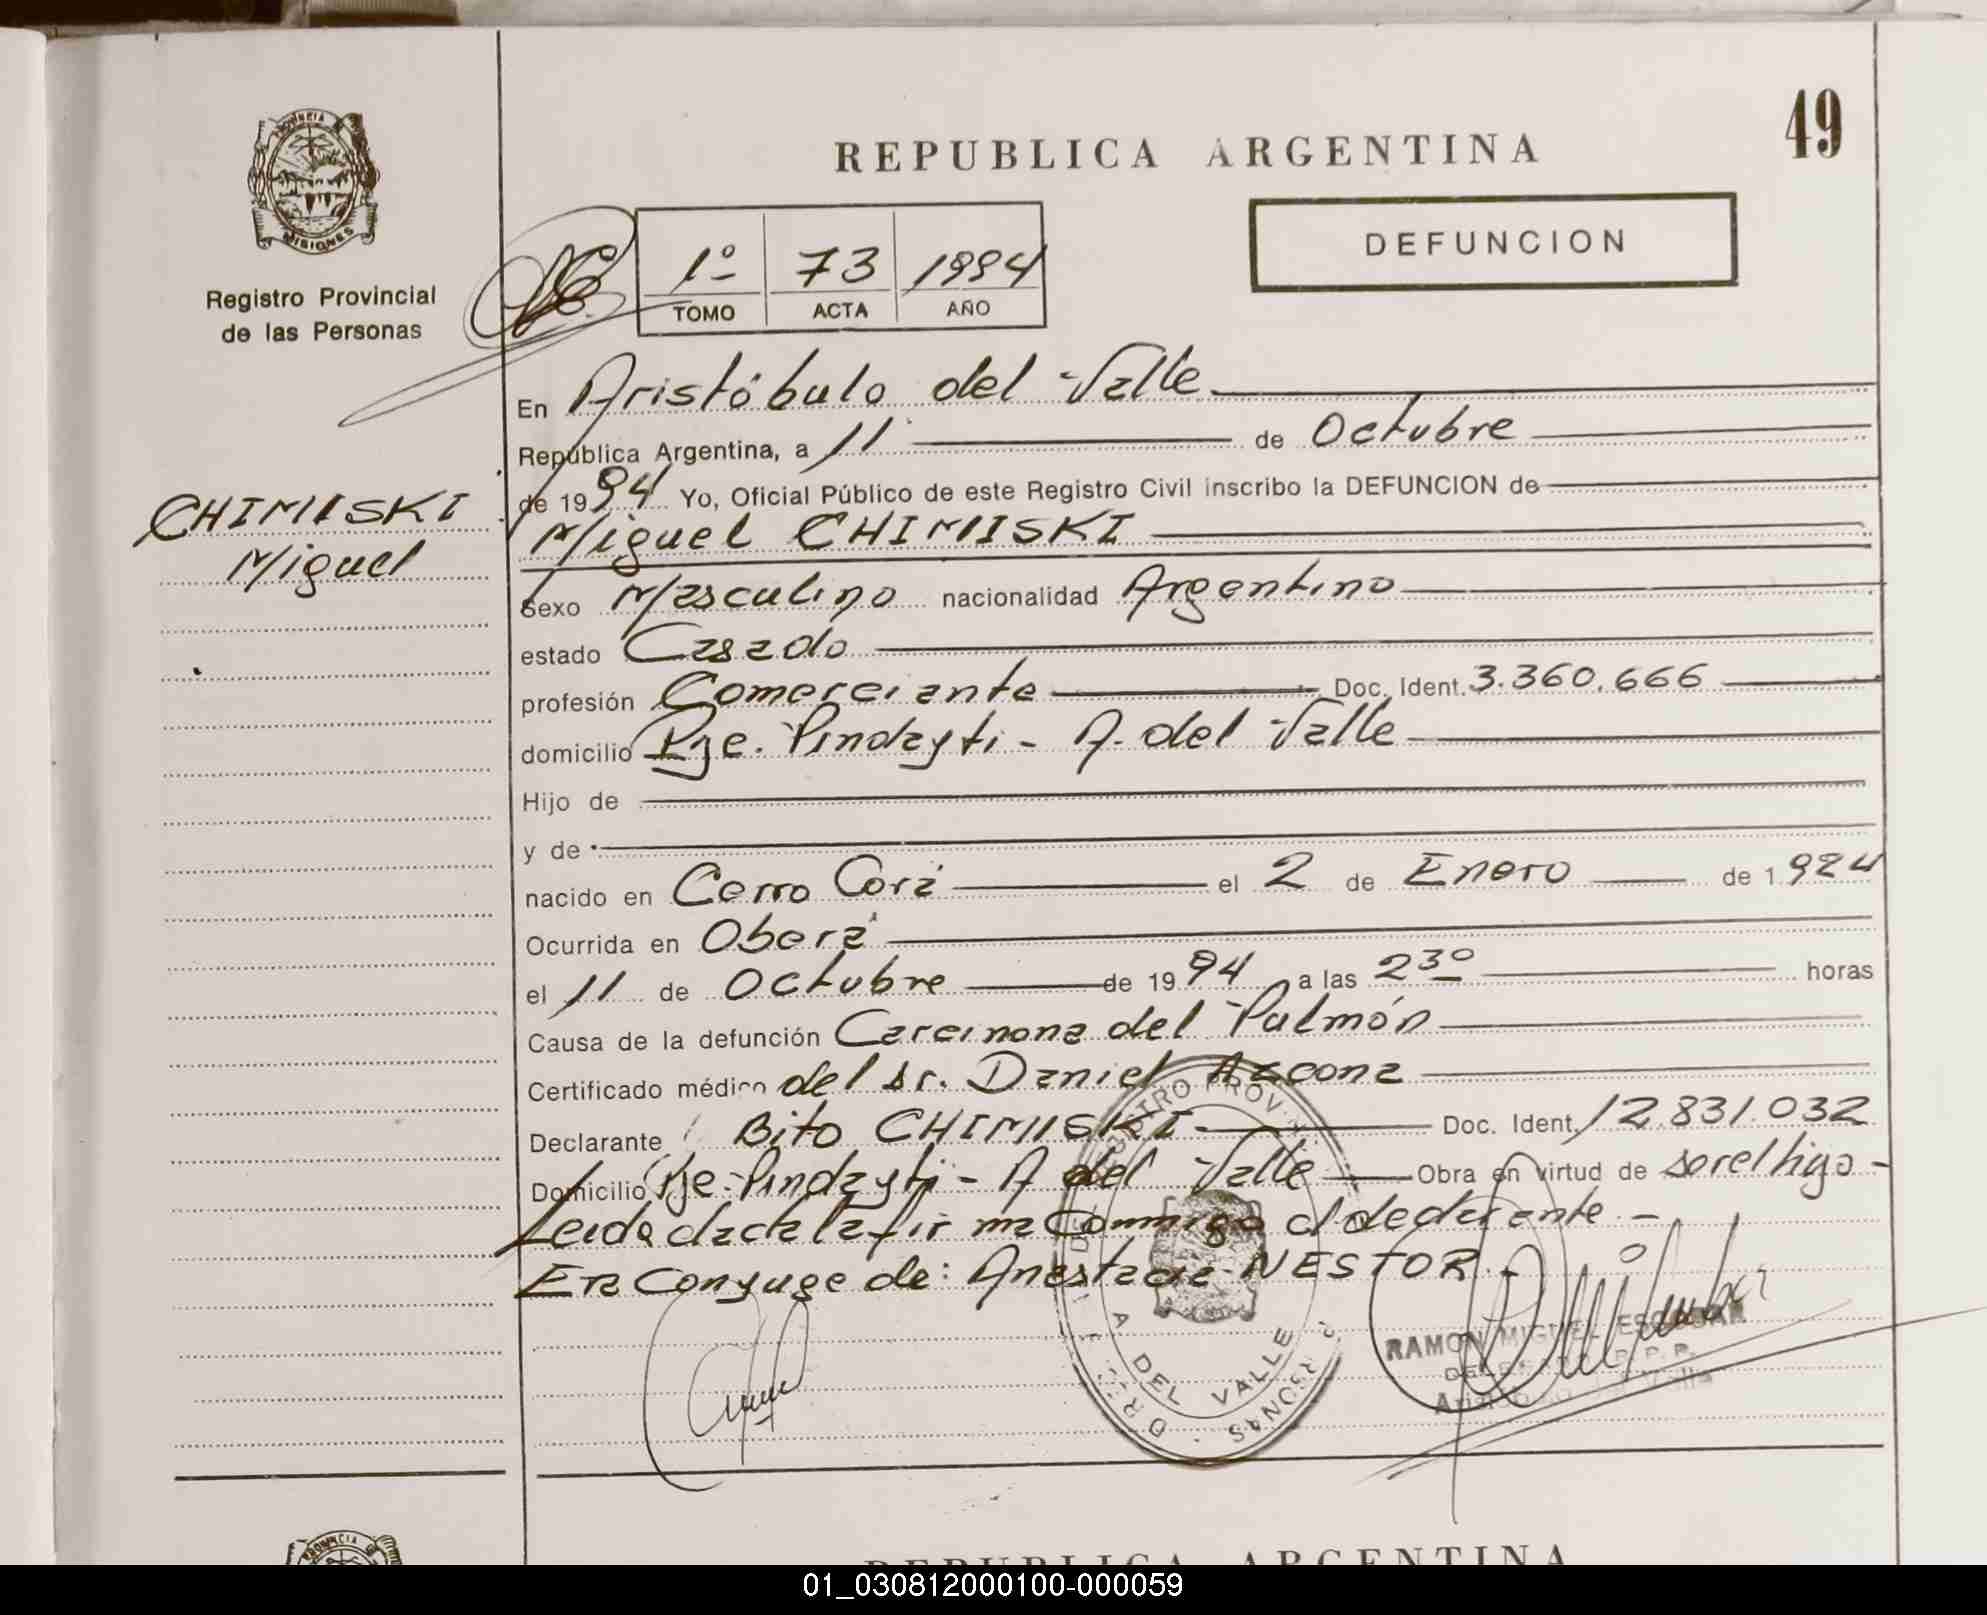 49
PROVINCIA DE
MISIONES
Registro Provincial
de las Personas
REPUBLICA ARGENTINA
DEFUNCION
1º 73 1994
TOMO ACTA AÑO
En Aristóbulo del Valle
República Argentina, a 11 de Octubre
de 1994 Yo, Oficial Público de este Registro Civil inscribo la DEFUNCION de
CHIMISKI
Miguel
Miguel CHIMISKI
Sexo Masculino nacionalidad Argentino
estado Casado
profesión Comerciante Doc. Ident. 3.360.666
domicilio Pje. Pindayti - A. del Valle
Hijo de
y de
nacido en Cerro Corá el 2 de Enero de 1924
Ocurrida en Oberá
el 11 de Octubre de 1994 a las 23º horas
Causa de la defunción Carcinona del Pulmón
Certificado médico del dr. Daniel Azcona
Declarante Bito CHIMISKI Doc. Ident. 12.831.032
Domicilio Pje. Pindayti - A del Valle Obra en virtud de ser el hijo -
Leida el acta la firma Conmigo el declarante. -
Era Conyuge de: Anastacia NESTOR. -
A. DEL VALLE
RAMON MIGUEL ESCOBAR
REPUBLICA ARGENTINA
01_030812000100-000059